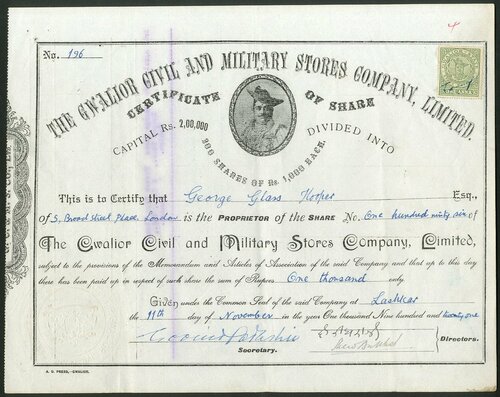 No. 196
THE GWALIOR CIVIL AND MILITARY STORES COMPANY, LIMITED.
CERTIFICATE OF SHARE
CAPITAL Rs. 2,00,000 DIVIDED INTO
200 SHARES OF Rs. 1,000 EACH.
This is to Certify that George Glass Hooper Esq.,
of 5, Broad Street Place, London is the PROPRIETOR OF THE SHARE No. One hundred ninty six of
The Gwalior Civil and Military Stores Company, Limited,
subject to the provisions of the Memorandum and Articles of Association of the said Company and that up to this day
there has been paid up in respect of each share the sum of Rupees One thousand only.
Given under the Common Seal of the said Company at Lashkar
the 11th day of November in the year One thousand Nine hundred and twenty one
Secretary.
Directors.
A. D. PRESS,—GWALIOR.